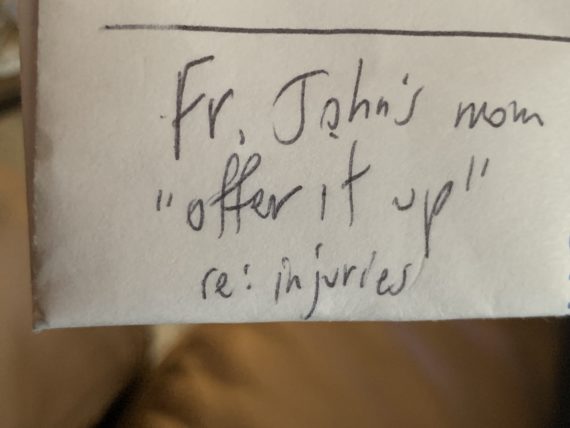 Fr. John's mom
"offer it up"
re: injuries